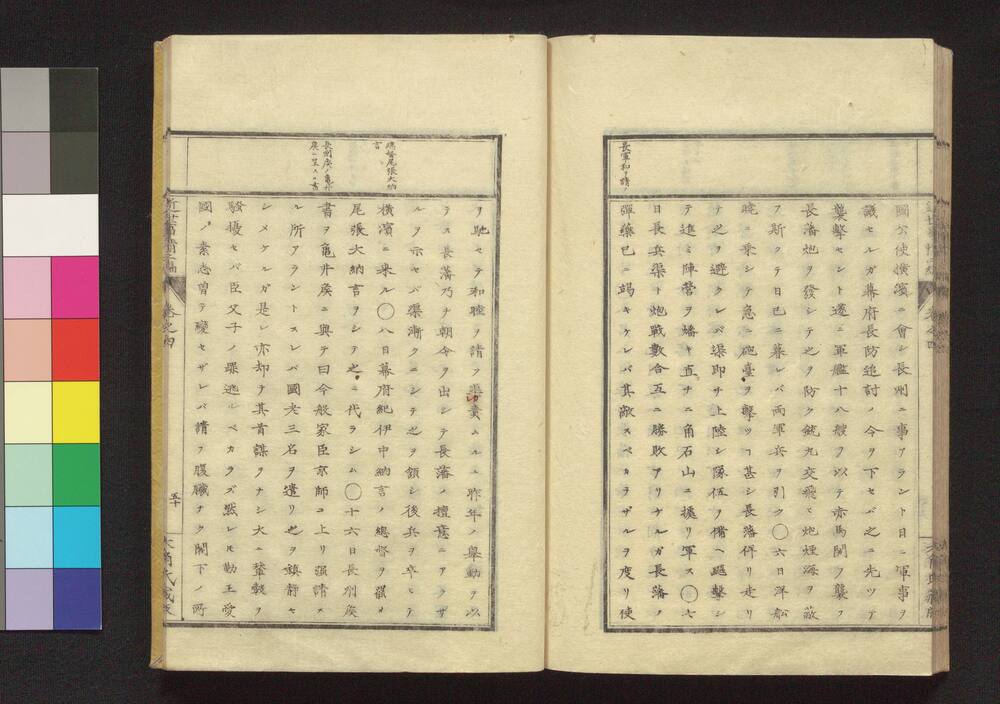 長軍和ヲ請フ
國公使横濱ニ會シ長州ニ事アラント日ニ軍事ヲ
議セルガ幕府長防追討ノ令ヲ下セバ之ニ先ツテ
襲撃セント遂ニ軍艦十八艘ヲ以テ赤馬関ヲ襲フ
長藩炮ヲ發シテ之ヲ防ク銃丸交飛ヒ炮煙海ヲ蔽
フ斯クテ日已ニ暮レバ両軍兵ヲ引ク〇六日洋舩
暁ニ乗シテ急ニ砲臺ヲ撃ツ甚シ長藩佯リ走リ
テ之ヲ避クレバ渠即チ上陸シ隊伍ヲ備ヘ追撃シ
テ進ミ陣營ヲ燔キ直チニ角石山ニ據リ軍ス〇七
日長兵渠ト炮戰數合互ニ勝敗アリケルガ長藩ノ
彈藥已ニ竭キケレバ其敵スベカラザルヲ度リ使
総督尾張大納
言
長州侯ノ亀井
侯ニ呈スルノ書
ヲ馳セテ和睦ヲ請フ渠ムルニ昨年ノ舉動ヲ以
テス長藩乃チ朝令ヲ出シテ長藩ノ擅意ニアラザ
ルヲ示セバ渠漸クニシテ之ヲ領シ後兵ヲ卒ヒテ
横濱ニ来ル〇八日幕府紀伊中納言ノ総督ヲ罷メ
尾張大納言ヲシテ之ニ代ラシム〇十六日長州侯
書ヲ亀井侯ニ與テ曰今般家臣京師ニ上リ強請ス
ル所アラントスレバ國老三名ヲ遣リ之ヲ鎮静セ
シメケルガ是レ亦却テ其首謀ヲナシ大ニ輦轂ヲ
騒擾セバ臣父子ノ罪逃ルベカラズ然レ𪜈勤王受
國ノ素志曽テ變セザレバ請フ腹臓ナク閣下ノ所
巻之四
五十